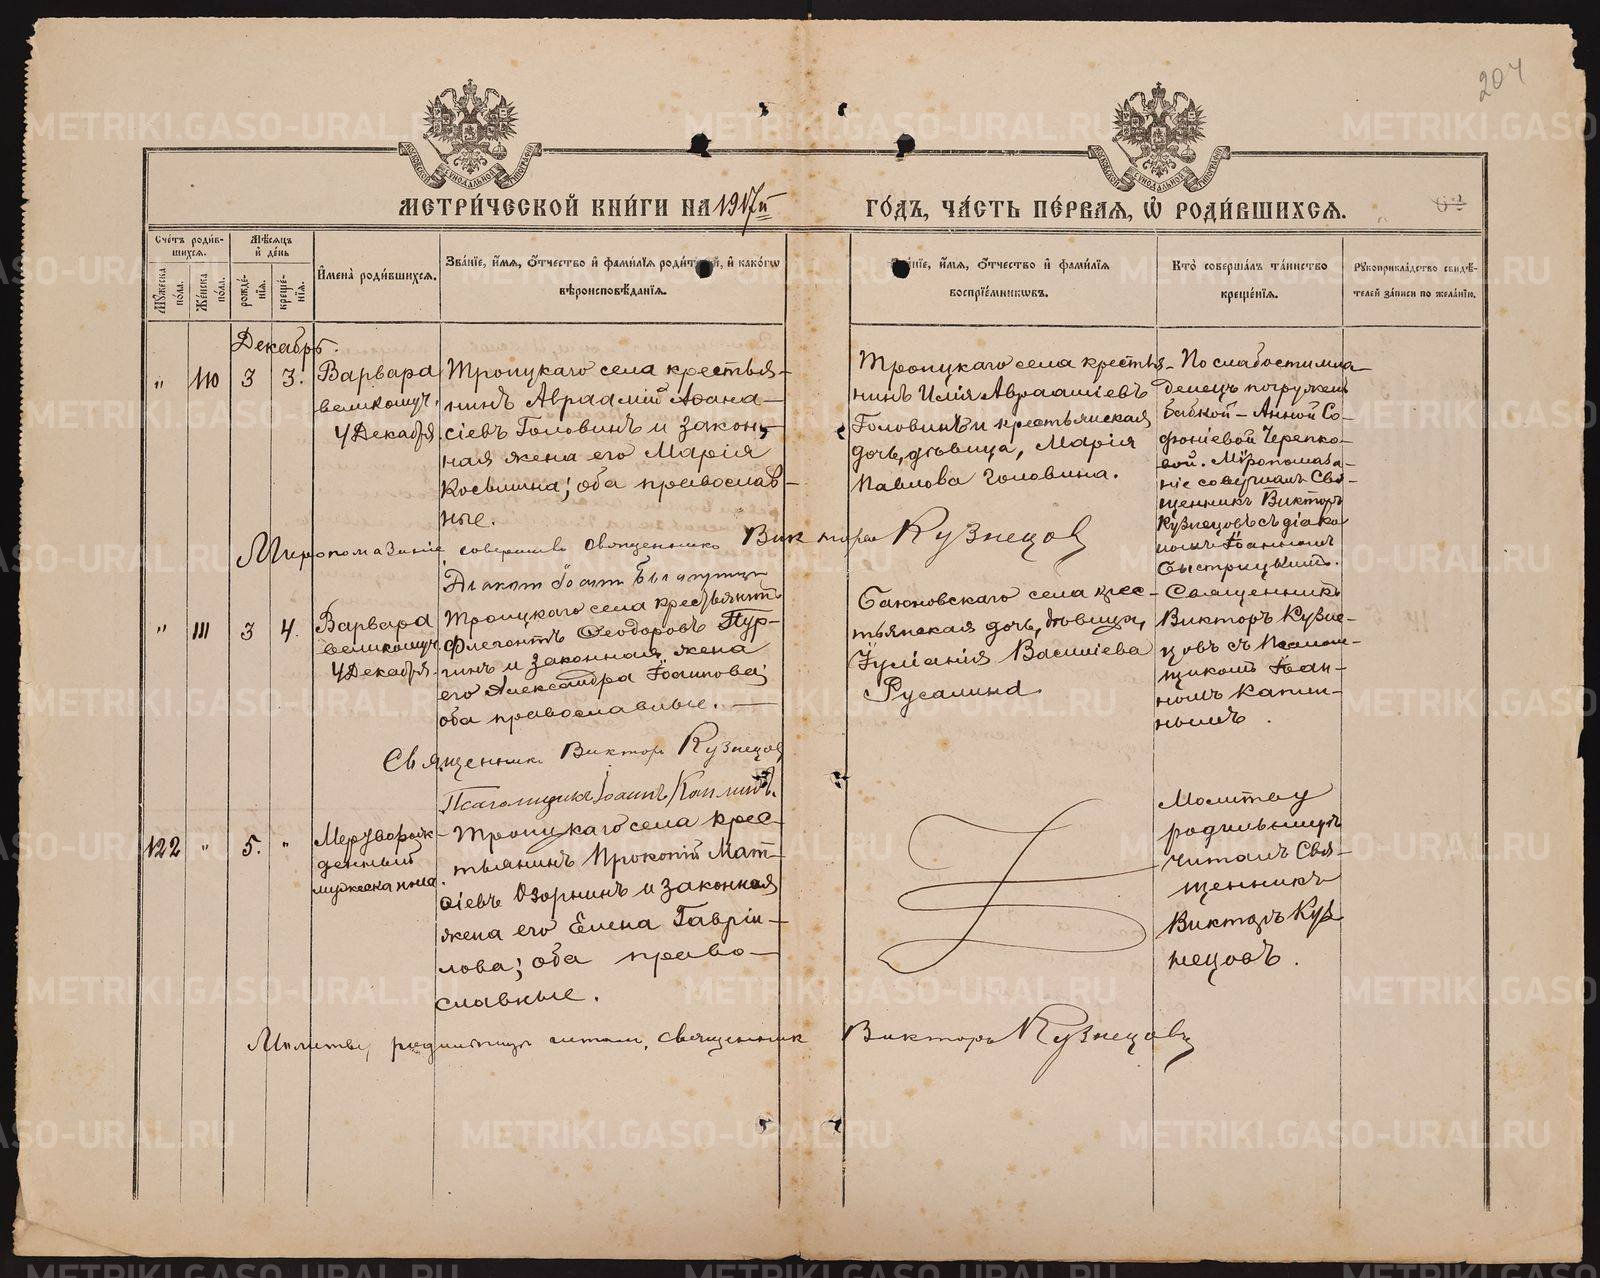 204
МЕТРИ́ЧЕСКОЙ КНИ́ГИ НА 1917й ГО́ДЪ, ЧА́СТЬ ПЕ́РВАЯ, Ѡ РОДИ́ВШИХСЯ.
Сче́тъ роди́в-
шихся.
Му́жеска
по́ла.
Же́нска
по́ла.
Мѣ́сяцъ
и҆ де́нь
рожде́-
нїя.
креще́-
нїя.
И҆мена̀ роди́вшихся.
Зва́нїе, и҆́мя, ѻ҆́тчество и҆ фами́лїя роди́телей, и҆ како́гѡ
вѣроисповѣ́данїя.
Зва́нїе, и҆́мя, ѻ҆́тчество и҆ фами́лїя
воспрїе́мникѡвъ.
Кто̀ соверша́лъ та́инство
креще́нїя.
Рꙋкоприкла́дство свидѣ́-
телей за́писи по жела́нїю.
Декабрь.
" 110 3 3.
Варвара
великомуч.
4 Декабря
Троицкаго села крестья-
нинъ Авраамій Аѳана-
сіевъ Головинъ и закон-
ная жена его Марія
Косьмина; оба православ-
ные.
Троицкаго села крестья-
нинъ Илія Авраамiевъ
Головинъ и крестьянская
дочь, дѣвица, Марія
Павлова Головина.
По слабости мла-
денецъ погруженъ
бабкой - Анной Со-
фоніевой Черепко-
вой. Мѵропомаза-
ніе совершилъ Свя-
щенникъ Викторъ
Кузнецовъ съ діако
номъ Іоанномъ
Быстрицкимъ.
Миропомазаніе совершилъ священникъ Викторъ Кузнецовъ
Діаконъ Іоаннъ Быстрицкій
" 111 3 4.
Варвара
великомуч.
4 Декабря
Троицкаго села крестьянинъ
Флегонтъ Ѳеодоровъ Пур-
гинъ и законная жена
его Александра Іоаннова;
оба православные.
Баюновскаго села крес-
тьянская дочь, дѣвица,
Іуліанія Василіева
Русалина
Священникъ
Викторъ Кузне-
цовъ съ псалом-
щикомъ Іоан-
номъ Капли-
нымъ.
Священникъ Викторъ Кузнецовъ
Псаломщикъ Іоаннъ Каплинъ.
122 " 5. "
Мертворож-
денный
мужеска пола.
Троицкаго села крес-
тьянинъ Прокопій Мат-
ѳіевъ Озорнинъ и законная
жена его Елена Гаврiи-
лова; оба право-
славные.
Молитву
родильницѣ
читалъ Свя-
щенникъ
Викторъ Куз
нецовъ.
Молитву родильницѣ читалъ, священникъ Викторъ Кузнецовъ